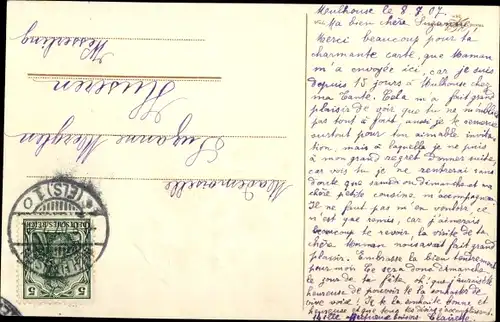 Mulhouse le 8.8.07.
Ma bien chère Suzanne,
Merci beaucoup pour ta
charmante carte, que Maman
m'a envoyée ici, car je suis
depuis 15 jours à Mulhouse chez
ma Tante. Cela m'a fait grand
plaisir de voir que tu ne m'oublies
pas tout à fait aussi je te remercie
surtout pour ton aimable invita-
tion, mais à laquelle je ne puis
à mon grand regret donner suite,
car vois tu je ne rentrerai sans
doute que samedi ou dimanche et ma
chère petite cousine m'accompagnera.
Il ne faut pas m'en vouloir, ce
n'est que remis, car j'aimerais
beaucoup te revoir, la visite de ta
chère Maman nous avait fait grand
plaisir. Embrasse la bien tendrement
pour moi. Ce sera donc dimanche
le jour de ta fête oh! que j'aurais été
heureuse de pouvoir te la souhaiter de
vive voix! Je te la souhaite bonne et
heureuse et que tous tes désirs s'accomplissent.
Mille baisers Clairette
Mademoiselle
Suzanne
Husseren
Wesserling
DEUTSCHES REICH
5
5
(ELS)